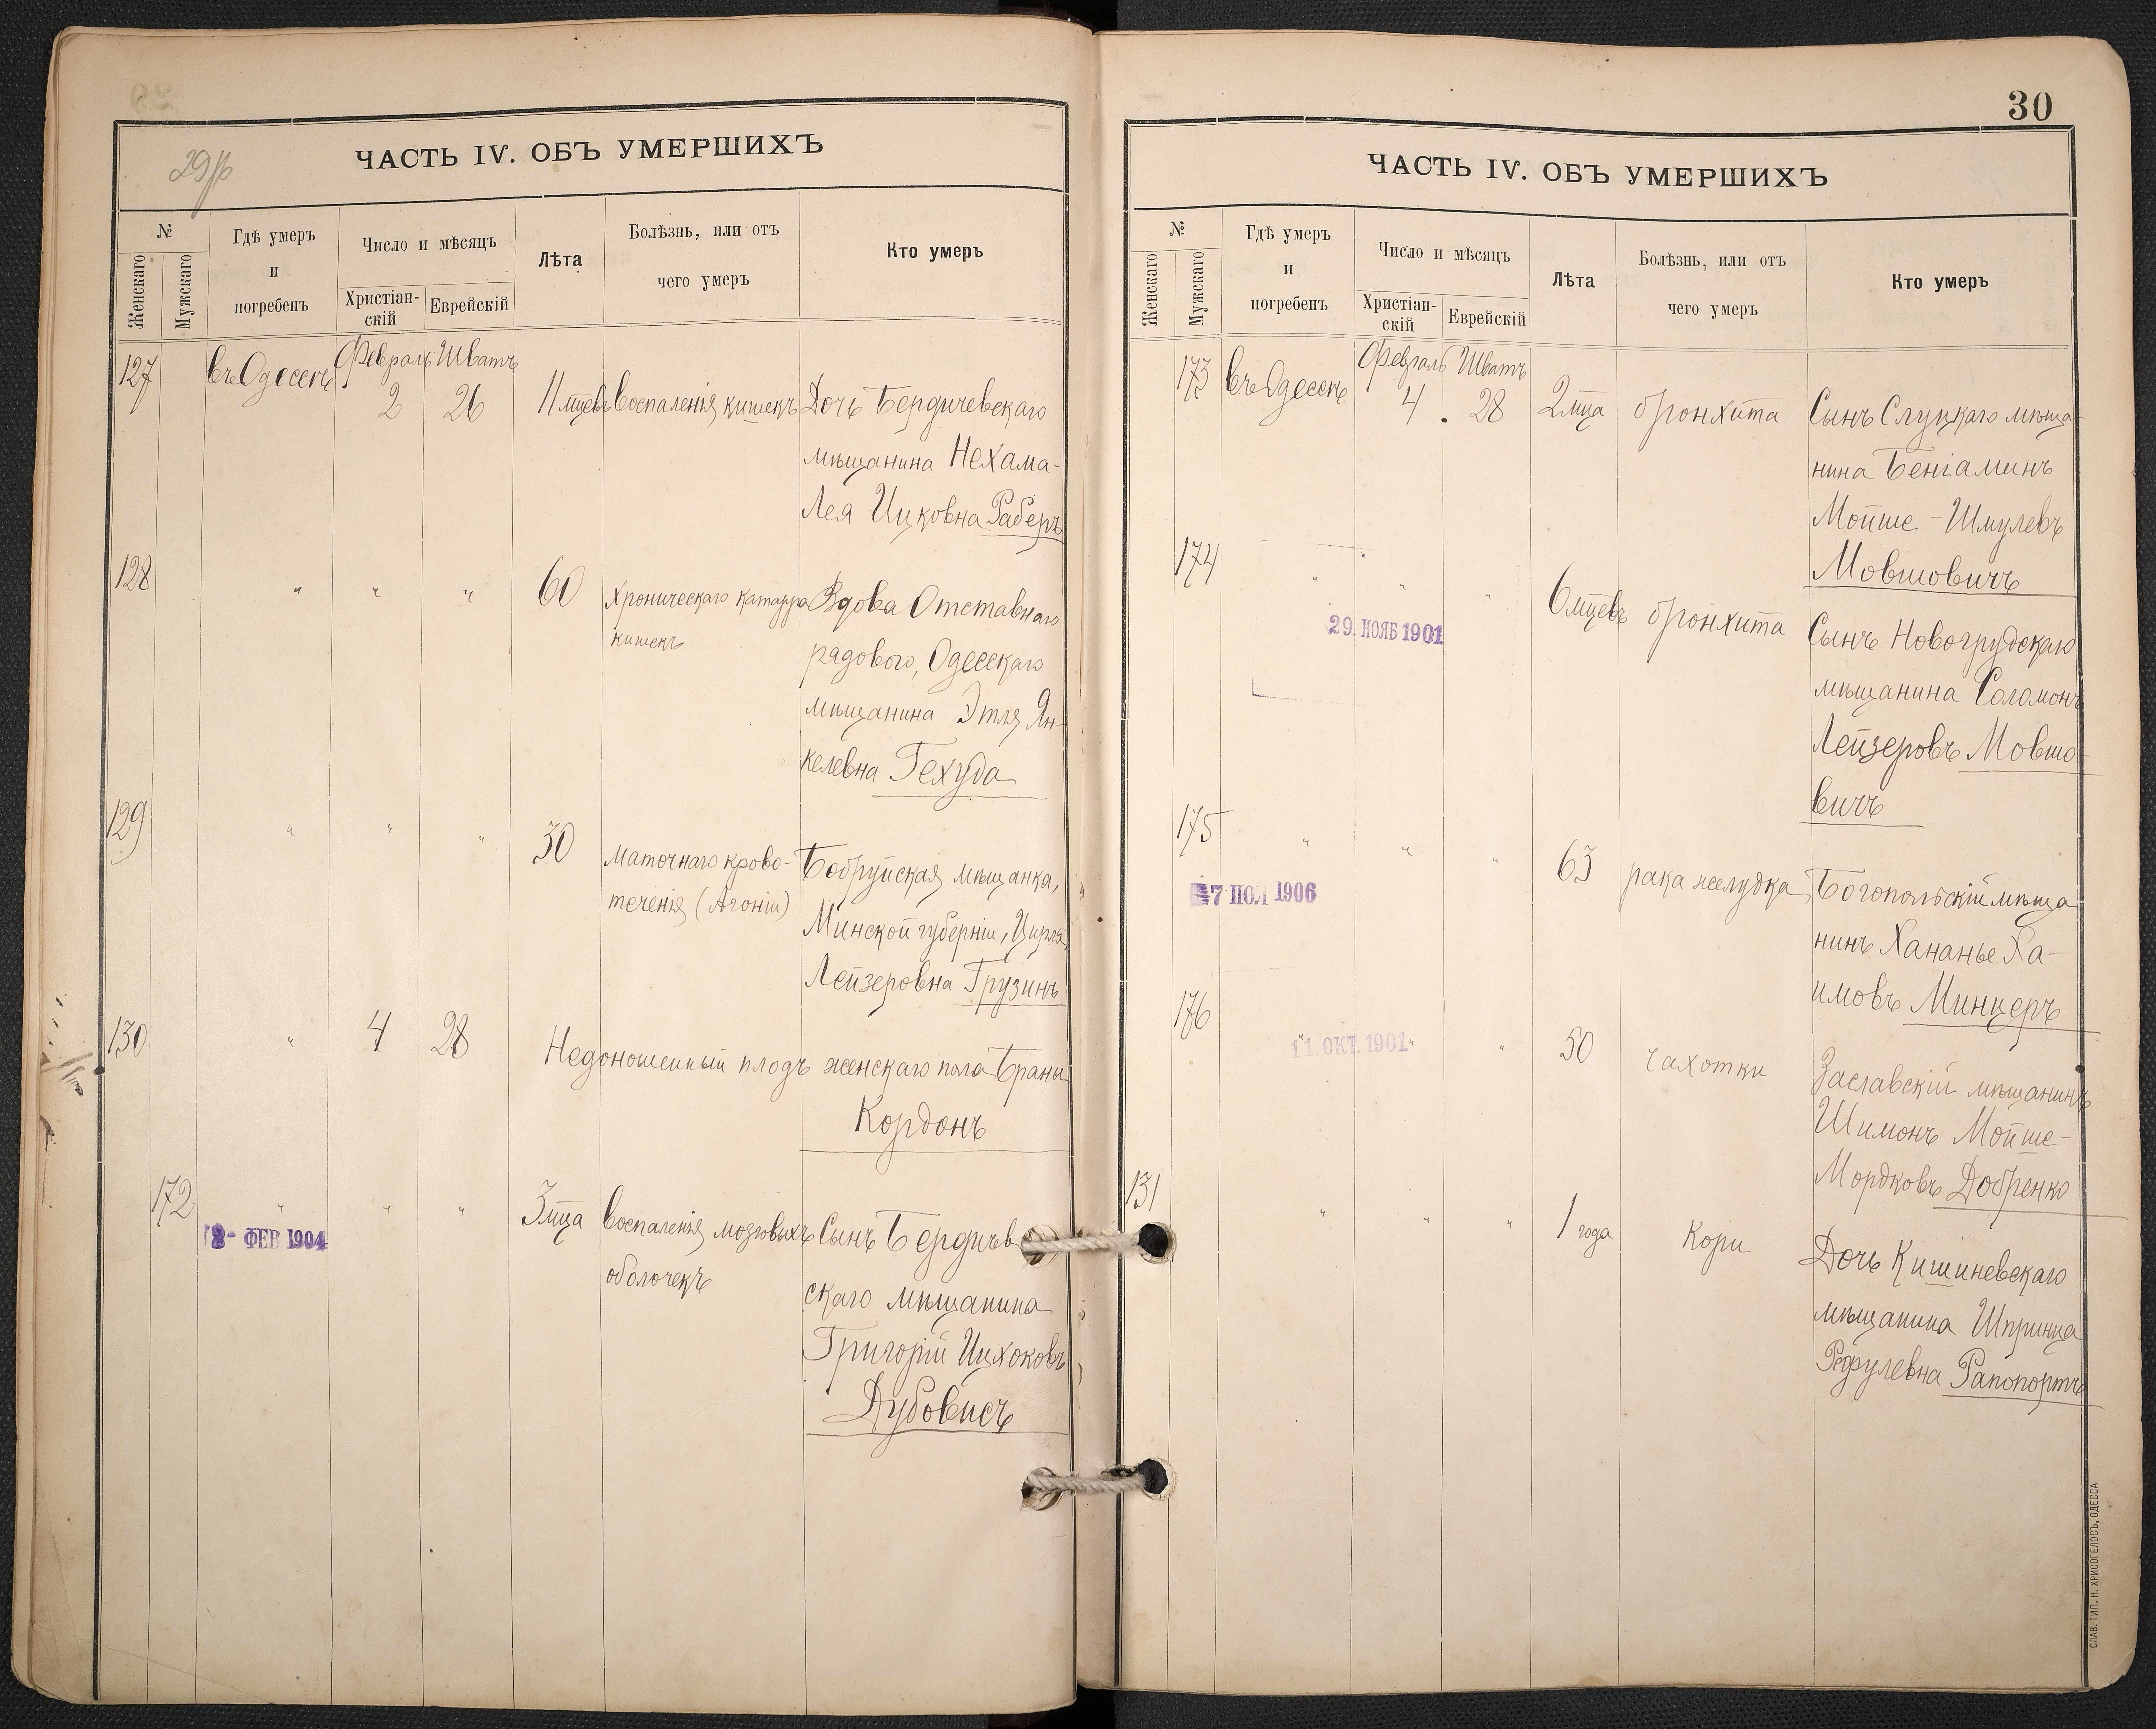 29 об
ЧАСТЬ IV. ОБЪ УМЕРШИХЪ
№
Женскаго
Мужскаго
Гдѣ умеръ
и
погребенъ
Число и мѣсяцъ
Христіан-
скій
Еврейскій
Лѣта
Болѣзнь, или отъ
чего умеръ
Кто умеръ
127 въ Одессѣ Февраль Шватъ
2 26 11 мцевъ воспаленія кишекъ Дочь Бердичевскаго
мѣщанина Нехама-
Лея Ицковна Раберъ
128 " " " 60 Хроническаго катарра Вдова Отставнаго
кишекъ
рядового, Одесскаго
мѣщанина Этля Ян-
келевна Гехуда
129 " " " 30 маточнаго крово- Бобруйская мѣщанка,
теченія (Агоніи)
Минской губерніи, Цирля
Лейзеровна Грузинъ
130 " 4 28 Недоношенный плодъ женскаго пола Браны
Кордонъ
172 " " " 3 мца воспаленія мозговыхъ Сынъ Бердичев
оболочекъ
ФЕВ 1904
скаго мѣщанина
Григорій Ицхоковъ
Дубовисъ
30
ЧАСТЬ IV. ОБЪ УМЕРШИХЪ
№
Женскаго
Мужскаго
Гдѣ умеръ
и
погребенъ
Число и мѣсяцъ
Христіан-
скій
Еврейскій
Лѣта
Болѣзнь, или отъ
чего умеръ
Кто умеръ
173 въ Одессѣ Февраль Шватъ
4 28 2 мца бронхита Сынъ Слуцкаго мѣща-
нина Беніаминъ
Мойше-Шмулевъ
Мовшовичъ
174 " " " 6 мцевъ бронхита Сынъ Новогрудскаго
29. НОЯБ 1901
мѣщанина Соломонъ
Лейзеровъ Мовшо-
вичъ
175 " " " 63 рака желудка Богопольскій мѣща
7 ІЮЛ 1906
нинъ Хананье Ха-
имовъ Минцеръ
176 " " " 50 чахотки Заславскій мѣщанинъ
11. ОКТ. 1901
Шимонъ Мойше-
Мордковъ Добренко
131 " " " 1 года Кори Дочь Кишиневскаго
мѣщанина Шпринца
Рефулевна Рапопортъ
СЛАВ. ТИП. Н. ХРИСОГЕЛОСЪ, ОДЕССА